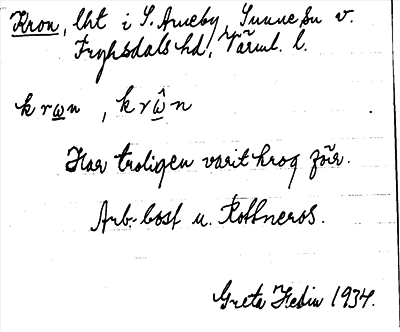 Kron, lht i S. Ameby, Sunne sn v.
Fryksdals hd, Värml. l.
krωn, krω̂n
Har troligen varit krog förr.
Arb.bost u. Rottneros.
Greta Hedin 1934.